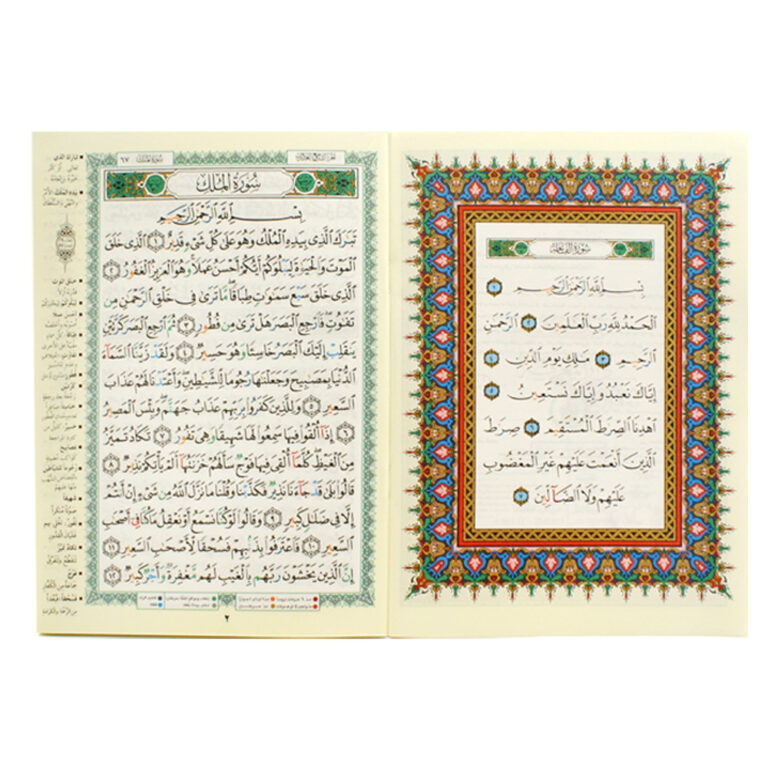 سُورَةُ الفَاتِحَة
بِسْمِ ٱللَّهِ ٱلرَّحْمَٰنِ ٱلرَّحِيمِ ١
ٱلْحَمْدُ لِلَّهِ رَبِّ ٱلْعَٰلَمِينَ ٢ ٱلرَّحْمَٰنِ
ٱلرَّحِيمِ ٣ مَٰلِكِ يَوْمِ ٱلدِّينِ ٤
إِيَّاكَ نَعْبُدُ وَإِيَّاكَ نَسْتَعِينُ ٥
ٱهْدِنَا ٱلصِّرَٰطَ ٱلْمُسْتَقِيمَ ٦ صِرَٰطَ
ٱلَّذِينَ أَنْعَمْتَ عَلَيْهِمْ غَيْرِ ٱلْمَغْضُوبِ
عَلَيْهِمْ وَلَا ٱلضَّآلِّينَ ٧
سُورَةُ المُلْك ٦٧
سُورَةُ المُلْك
بِسْمِ ٱللَّهِ ٱلرَّحْمَٰنِ ٱلرَّحِيمِ
تَبَٰرَكَ ٱلَّذِى بِيَدِهِ ٱلْمُلْكُ وَهُوَ عَلَىٰ كُلِّ شَىْءٍ قَدِيرٌ ١ ٱلَّذِى خَلَقَ
ٱلْمَوْتَ وَٱلْحَيَوٰةَ لِيَبْلُوَكُمْ أَيُّكُمْ أَحْسَنُ عَمَلًا وَهُوَ ٱلْعَزِيزُ ٱلْغَفُورُ ٢
ٱلَّذِى خَلَقَ سَبْعَ سَمَٰوَٰتٍ طِبَاقًا مَّا تَرَىٰ فِى خَلْقِ ٱلرَّحْمَٰنِ مِن
تَفَٰوُتٍ فَٱرْجِعِ ٱلْبَصَرَ هَلْ تَرَىٰ مِن فُطُورٍ ٣ ثُمَّ ٱرْجِعِ ٱلْبَصَرَ كَرَّتَيْنِ
يَنقَلِبْ إِلَيْكَ ٱلْبَصَرُ خَاسِئًا وَهُوَ حَسِيرٌ ٤ وَلَقَدْ زَيَّنَّا ٱلسَّمَآءَ
ٱلدُّنْيَا بِمَصَٰبِيحَ وَجَعَلْنَٰهَا رُجُومًا لِّلشَّيَٰطِينِ وَأَعْتَدْنَا لَهُمْ عَذَابَ
ٱلسَّعِيرِ ٥ وَلِلَّذِينَ كَفَرُوا۟ بِرَبِّهِمْ عَذَابُ جَهَنَّمَ وَبِئْسَ ٱلْمَصِيرُ
٦ إِذَآ أُلْقُوا۟ فِيهَا سَمِعُوا۟ لَهَا شَهِيقًا وَهِىَ تَفُورُ ٧ تَكَادُ تَمَيَّزُ
مِنَ ٱلْغَيْظِ كُلَّمَآ أُلْقِىَ فِيهَا فَوْجٌ سَأَلَهُمْ خَزَنَتُهَآ أَلَمْ يَأْتِكُمْ نَذِيرٌ ٨
قَالُوا۟ بَلَىٰ قَدْ جَآءَنَا نَذِيرٌ فَكَذَّبْنَا وَقُلْنَا مَا نَزَّلَ ٱللَّهُ مِن شَىْءٍ إِنْ أَنتُمْ
إِلَّا فِى ضَلَٰلٍ كَبِيرٍ ٩ وَقَالُوا۟ لَوْ كُنَّا نَسْمَعُ أَوْ نَعْقِلُ مَا كُنَّا فِىٓ أَصْحَٰبِ
ٱلسَّعِيرِ ١٠ فَٱعْتَرَفُوا۟ بِذَنۢبِهِمْ فَسُحْقًا لِّأَصْحَٰبِ ٱلسَّعِيرِ ١١
إِنَّ ٱلَّذِينَ يَخْشَوْنَ رَبَّهُم بِٱلْغَيْبِ لَهُم مَّغْفِرَةٌ وَأَجْرٌ كَبِيرٌ ١٢
٢